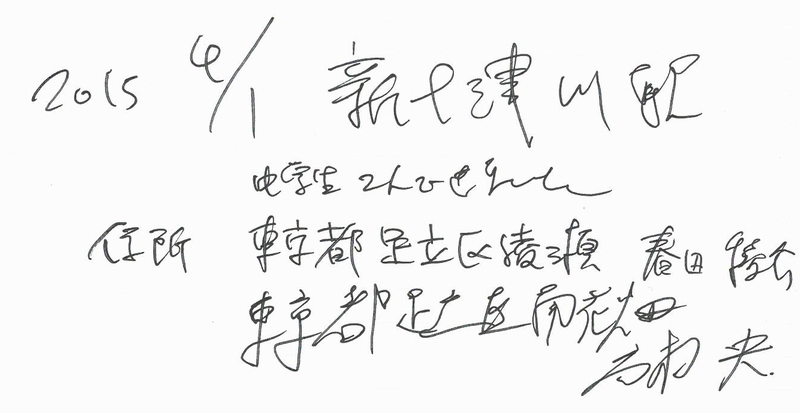 2015 4/1 新十津川駅
中学生 2人で
住所 東京都足立区綾瀬 春田
東京都足立区南花畑
高村 央